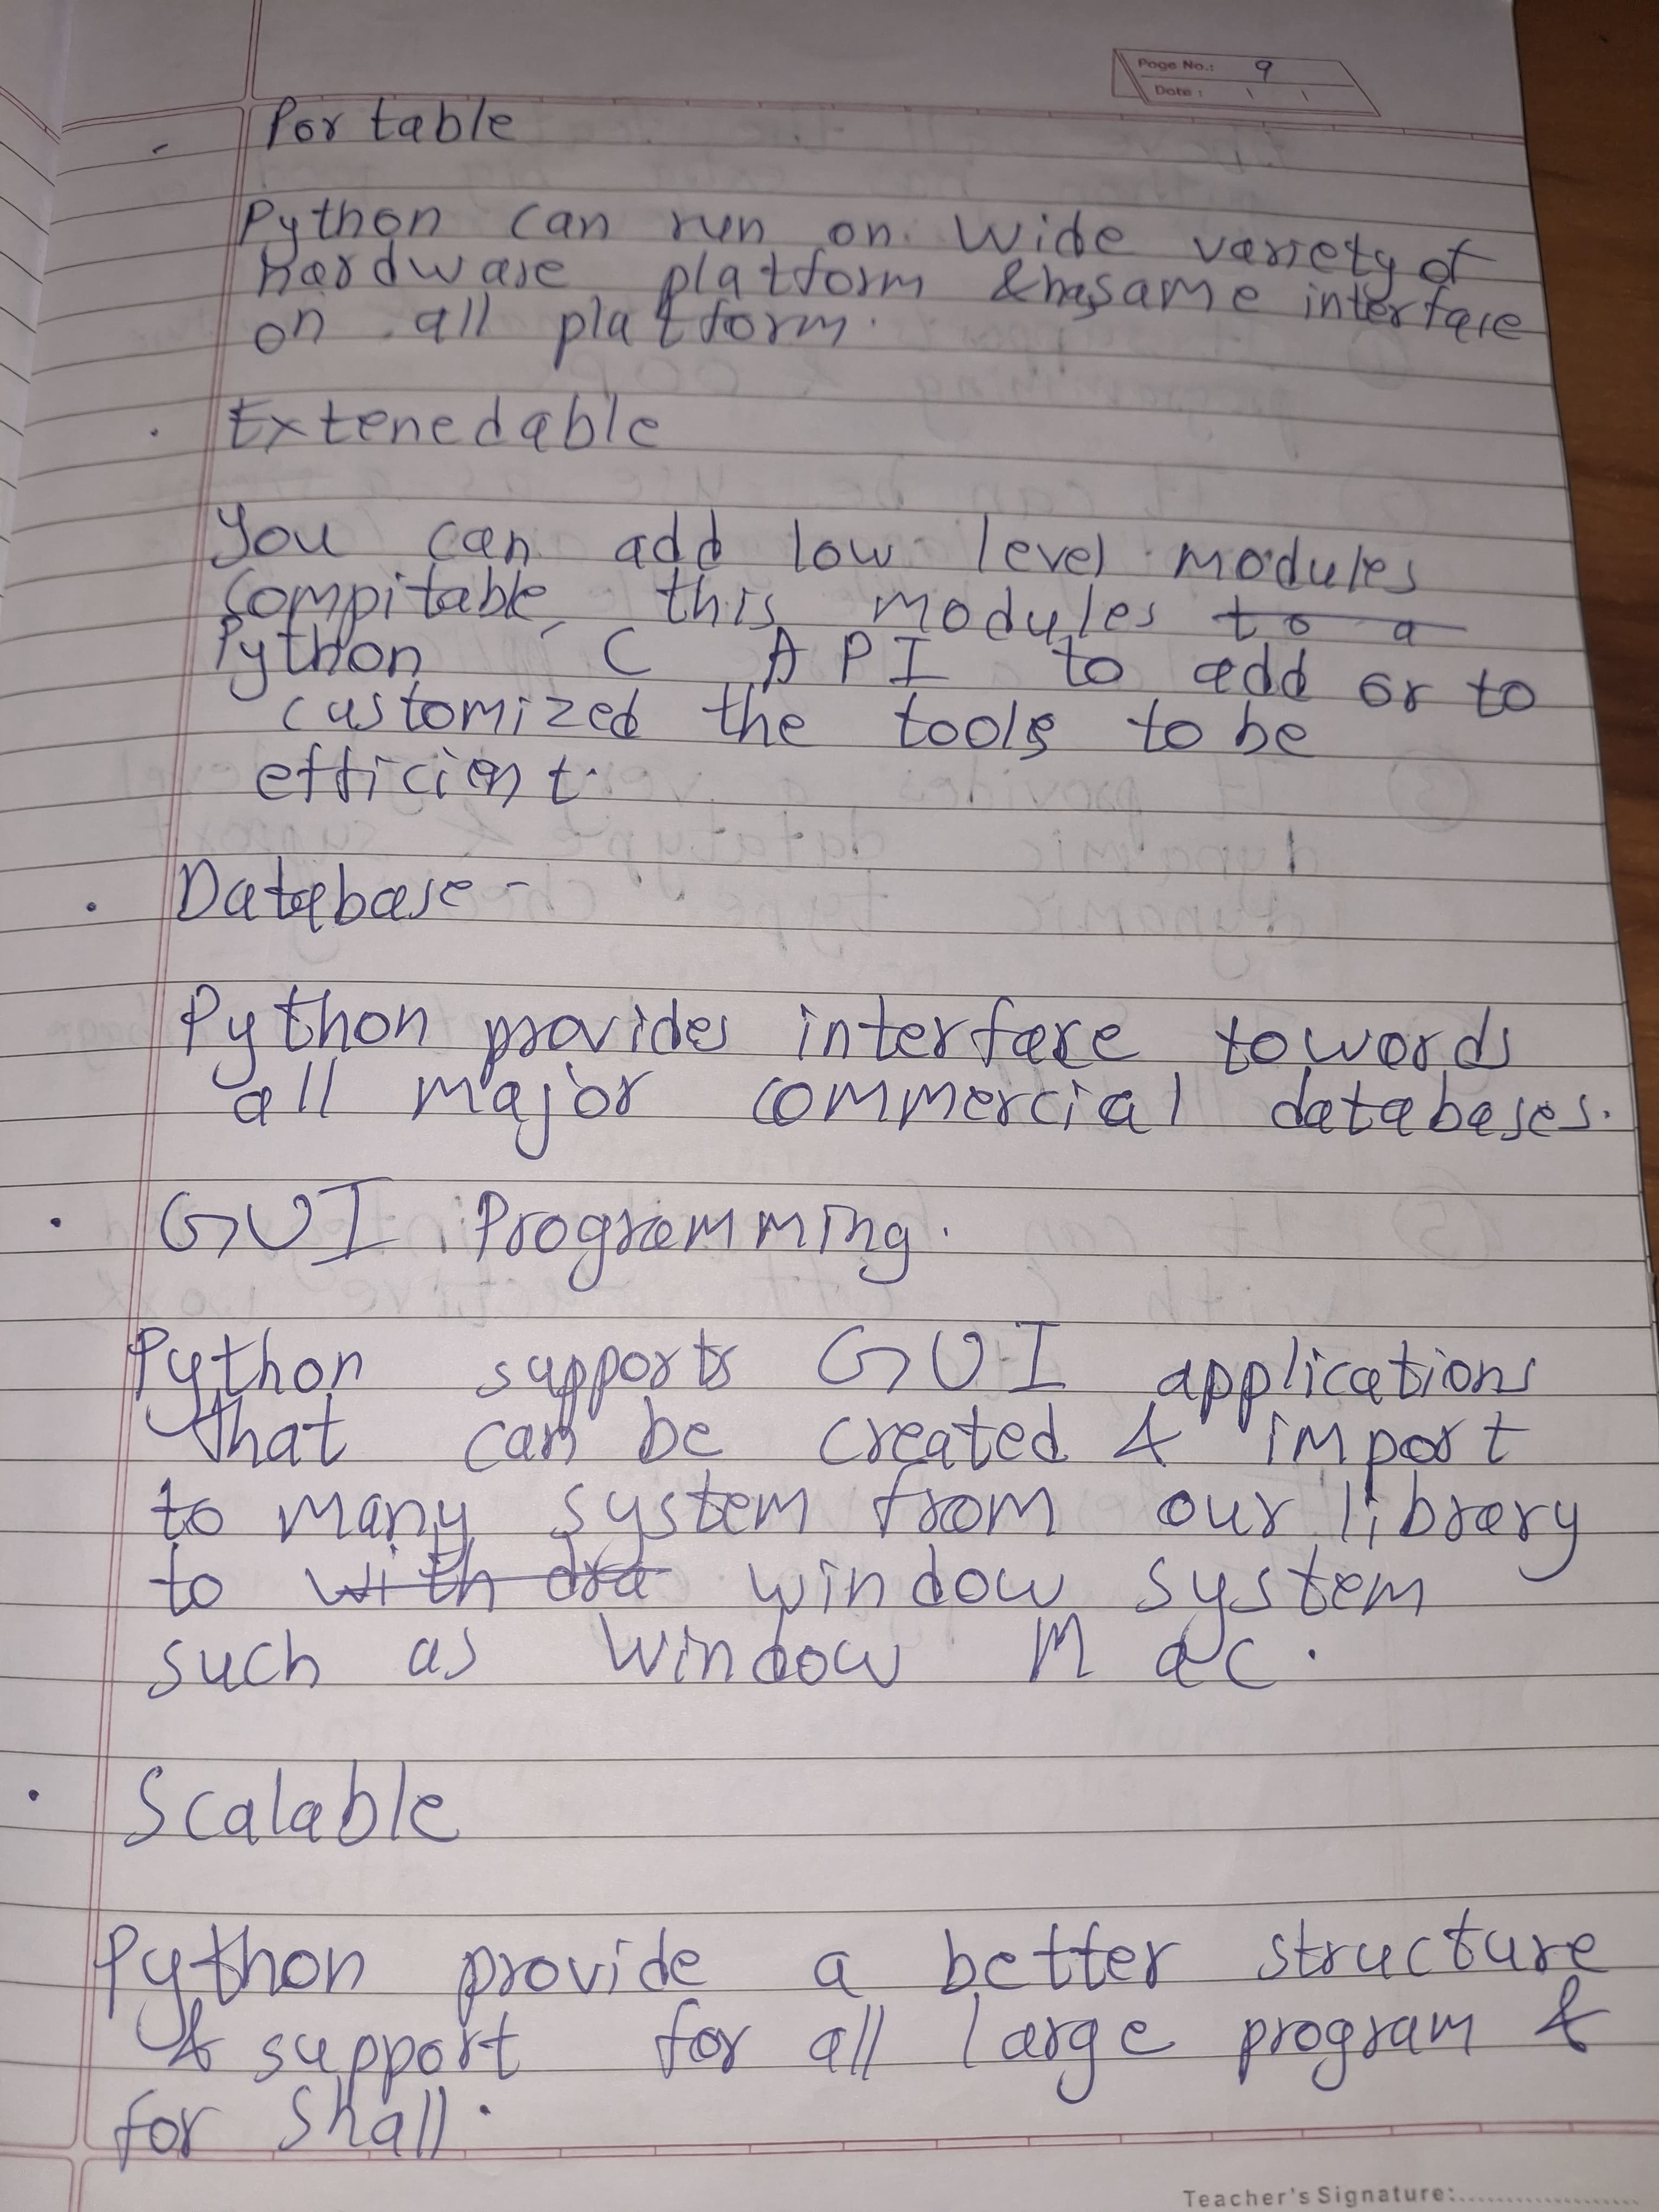 Page No.: 9
Date :
- Portable
Python can run on wide variety of
hardware platform & has same interface
on all platform.
· Extenedable
You can add low level modules
compitable this modules to a
Python C API to add or to
customized the tools to be
efficient.
· Database -
Python provides interface towords
all major commercial databases.
· GUI Programming.
Python supports GUI applications
that can be created & import
to many system from our library
to with window system
such as window Mac.
· Scalable
Python provide a better structure
& support for all large program &
for Shall.
Teacher's Signature: